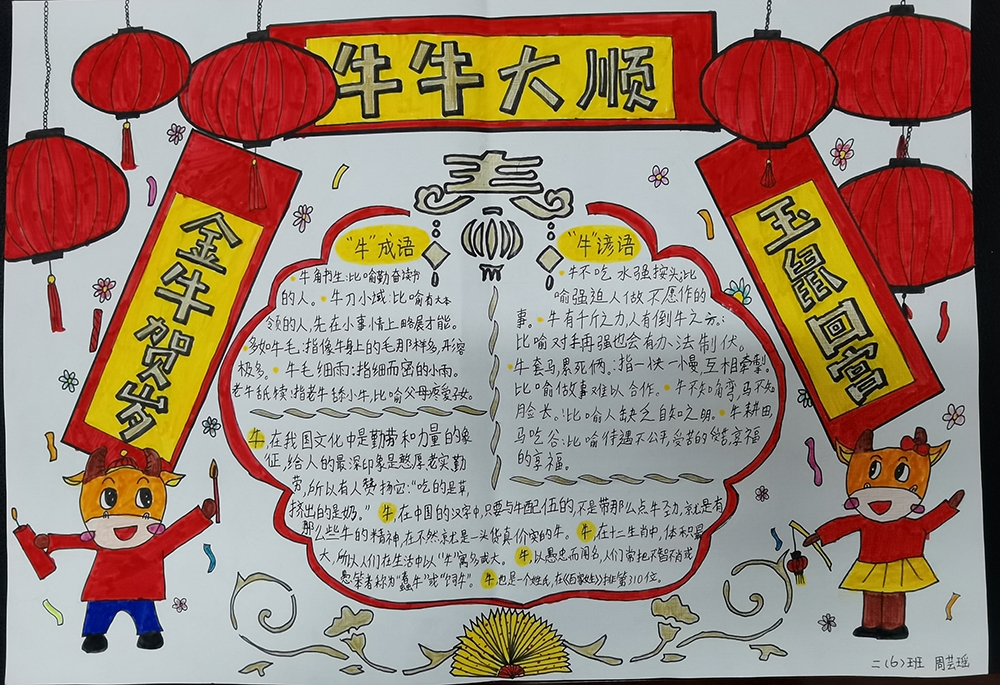 牛牛大顺
金牛贺岁
玉鼠回宫
春
"牛"成语
牛角书生:比喻勤奋读书
的人。牛刀小试:比喻有大本
领的人,先在小事情上略展才能。
多如牛毛:指像牛身上的毛那样多,形容
极多。牛毛细雨:指细而密的小雨。
老牛舐犊:指老牛舔小牛,比喻父母疼爱子女。
"牛"谚语
牛不吃水强按头:比
喻强迫人做不愿作的
事。牛有千斤之力,人有倒牛之方:
比喻对手再强也会有办法制伏。
牛套马,累死俩:指一快一慢,互相牵掣。
比喻做事难以合作。牛不知角弯,马不知
脸长:比喻人缺乏自知之明。牛耕田,
马吃谷:比喻待遇不公平,受苦的受苦,享福
的享福。
牛,在我国文化中是勤劳和力量的象
征,给人的最深印象是憨厚老实勤
劳,所以有人赞扬它:"吃的是草,
挤出的是奶。"牛,在中国的汉字中,只要与牛配伍的,不是带那么点牛子力,就是有
那么些牛的精神,在不然就是一头货真价实的牛。牛,在十二生肖中,体积最
大,所以人们在生活中以"牛"寓多或大。牛,以愚忠而闻名,人们常把不智不肖或
愚笨者称为"蠢牛"或"饲牛"。牛,也是一个姓氏,在《百家姓》排第310位。
二(6)班 周芸瑶